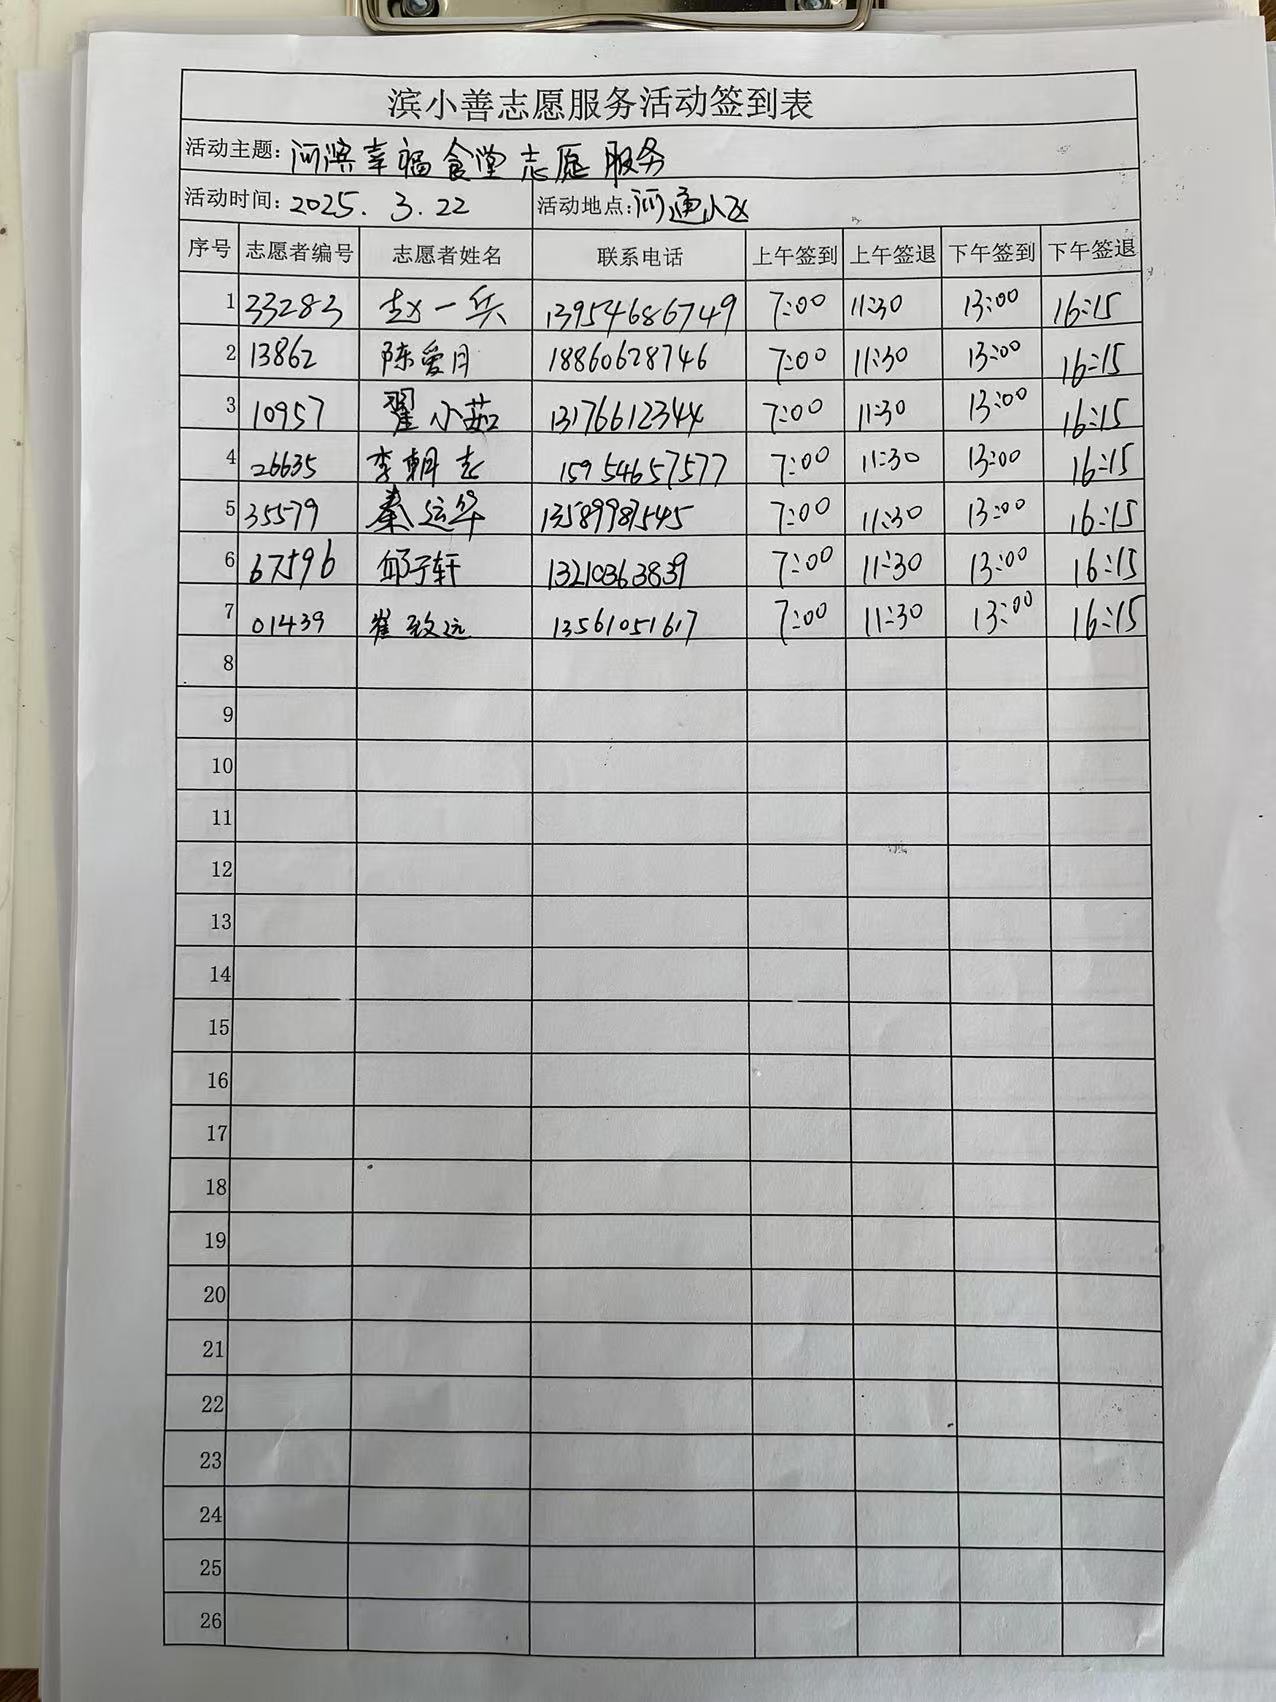 滨小善志愿服务活动签到表
活动主题: 河滨幸福食堂志愿服务
活动时间: 2025. 3. 22 活动地点: 河通小区
序号 志愿者编号 志愿者姓名 联系电话 上午签到 上午签退 下午签到 下午签退
1 33283 赵一兵 13954686749 7:00 11:30 13:00 16:15
2 13862 陈爱月 18860628746 7:00 11:30 13:00 16:15
3 10957 翟小茹 13176612344 7:00 11:30 13:00 16:15
4 26635 李朝志 15954657577 7:00 11:30 13:00 16:15
5 35579 秦运华 13589987545 7:00 11:30 13:00 16:15
6 67596 邱子轩 13210363839 7:00 11:30 13:00 16:15
7 01439 崔致远 13561051617 7:00 11:30 13:00 16:15
8
9
10
11
12
13
14
15
16
17
18
19
20
21
22
23
24
25
26